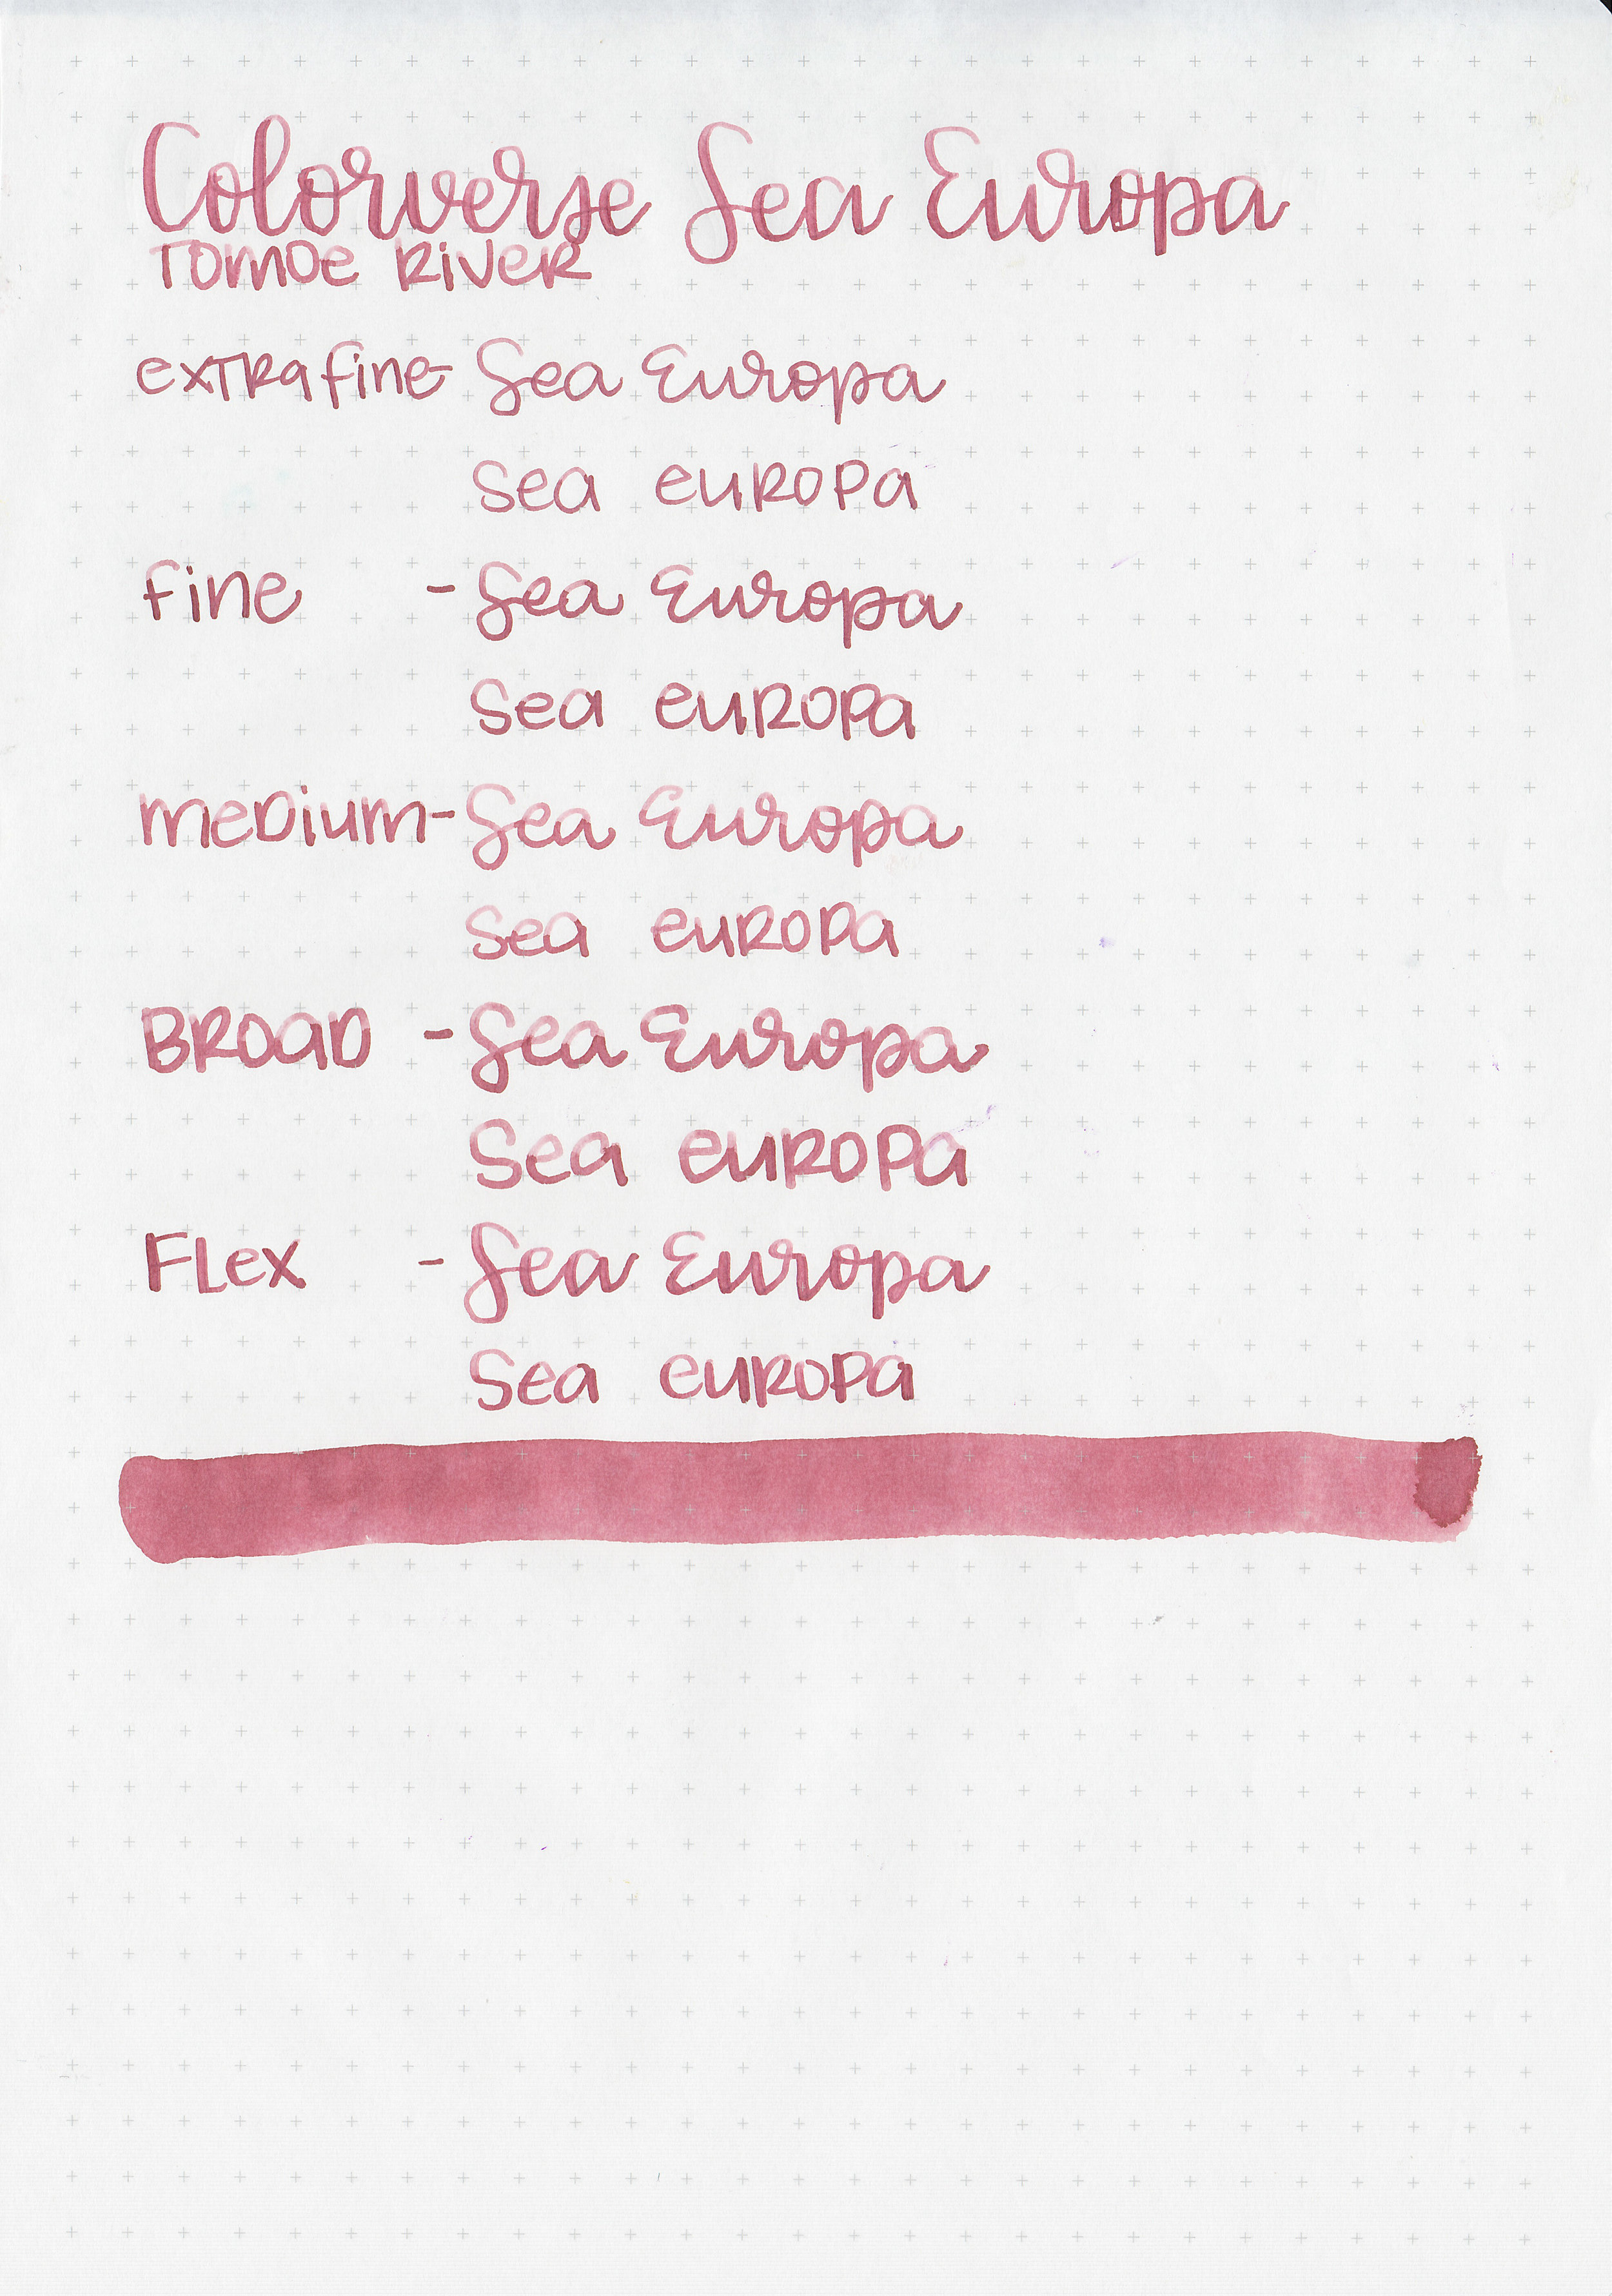 Colorverse Sea Europa
Tomoe River
extra fine - Sea Europa
Sea Europa
fine - Sea Europa
Sea Europa
medium - Sea Europa
Sea Europa
Broad - Sea Europa
Sea Europa
Flex - Sea Europa
Sea Europa